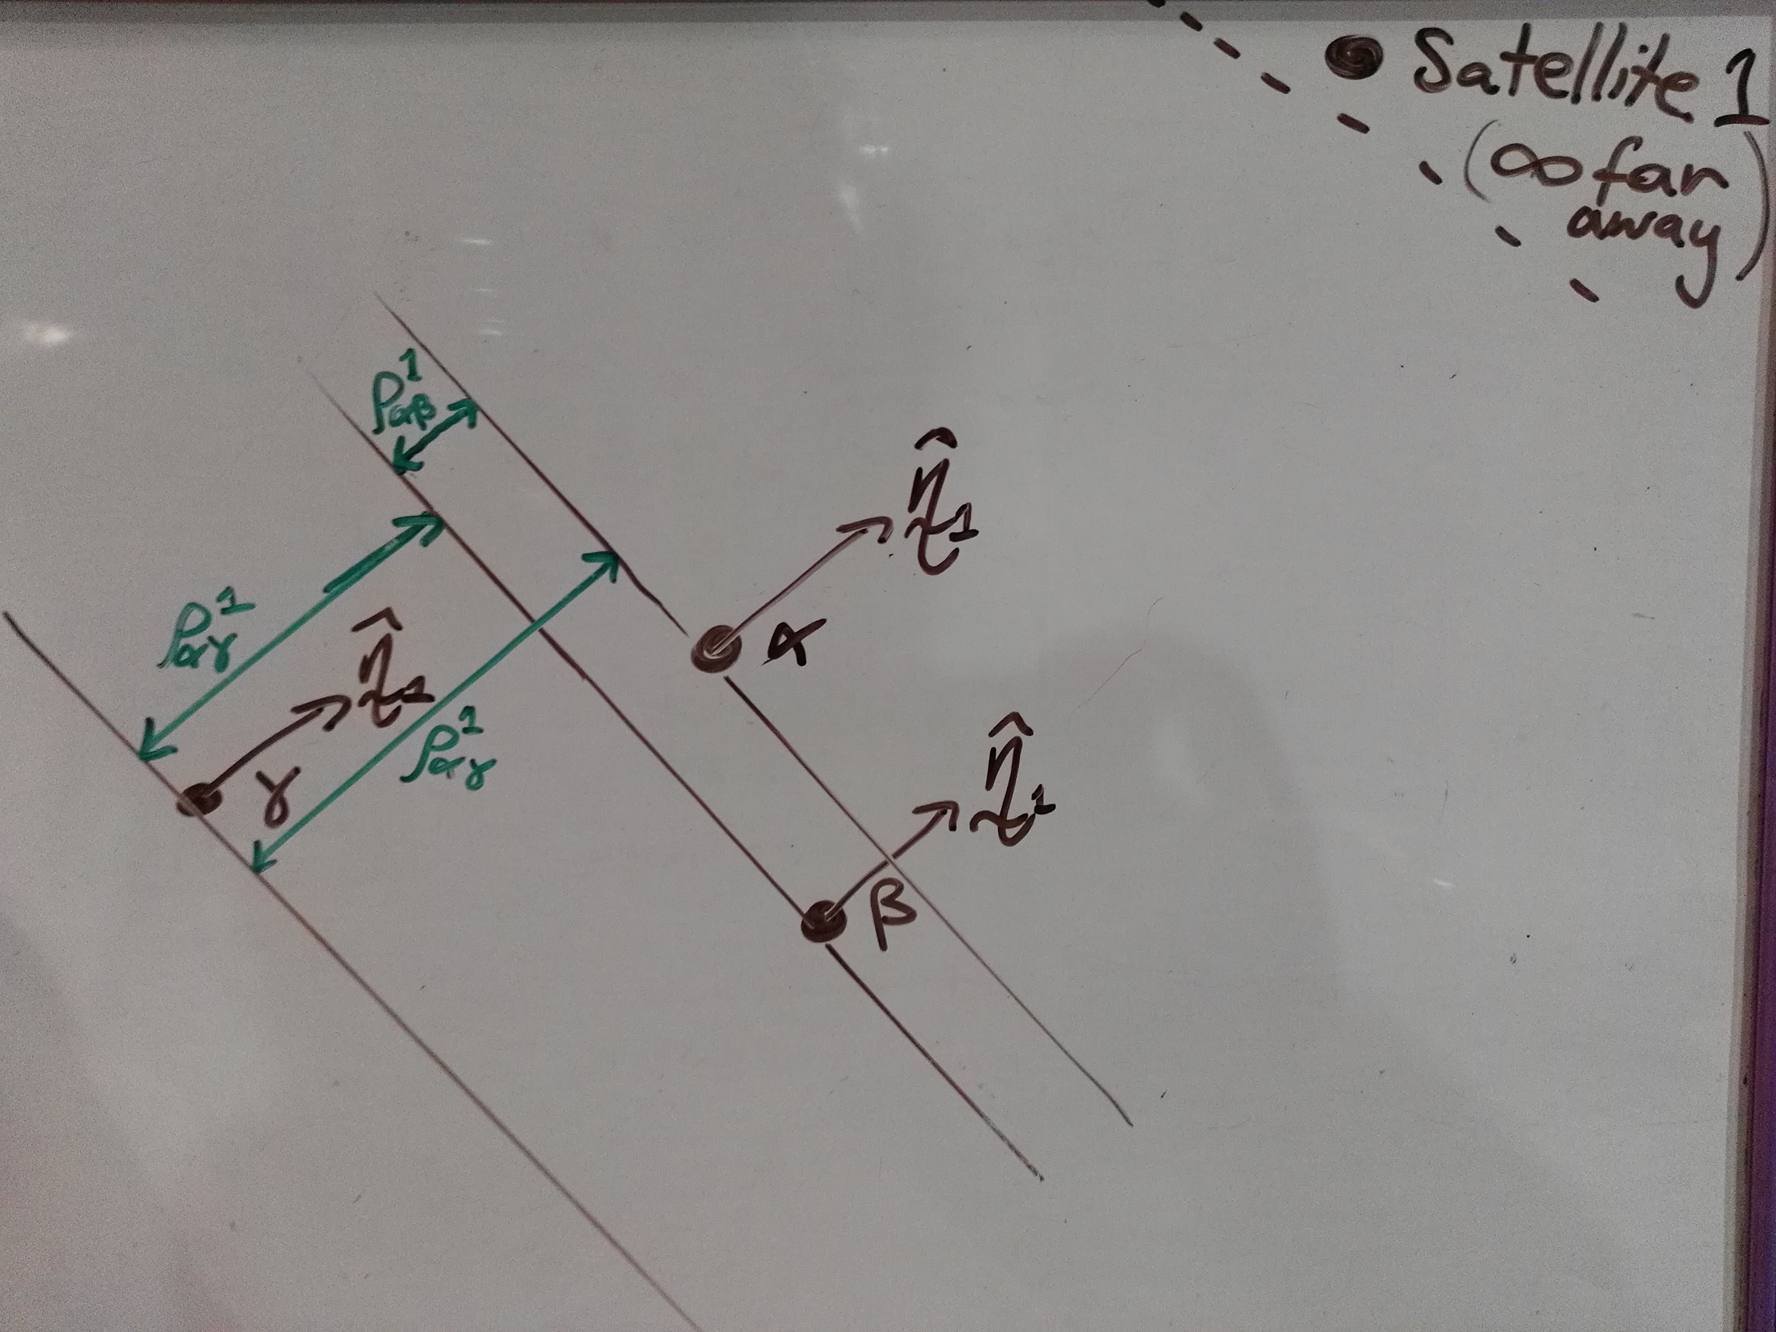 Satellite 1
(∞ far
away)
ρ¹αβ
η̂1
ρ¹αγ
η̂1
α
ρ¹αγ
η̂1
γ
β